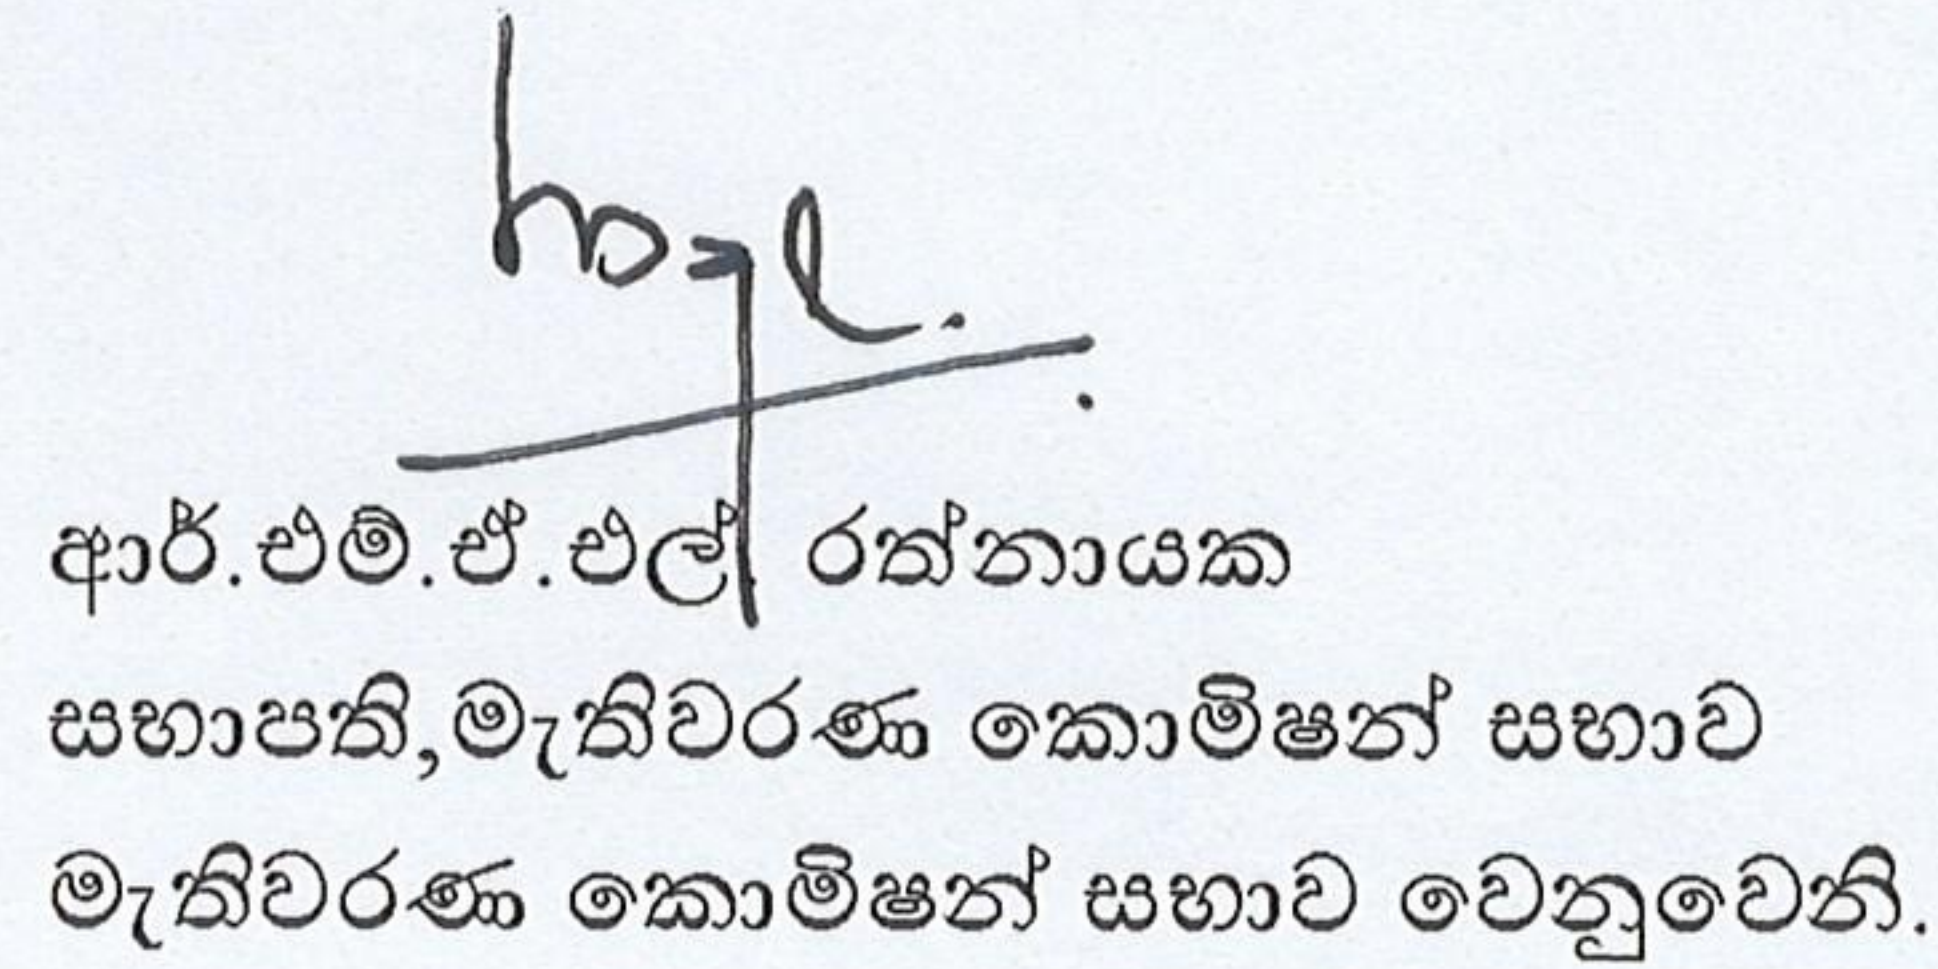 ආර්.එම්.ඒ.එල් රත්නායක
සභාපති,මැතිවරණ කොමිෂන් සභාව
මැතිවරණ කොමිෂන් සභාව වෙනුවෙනි.